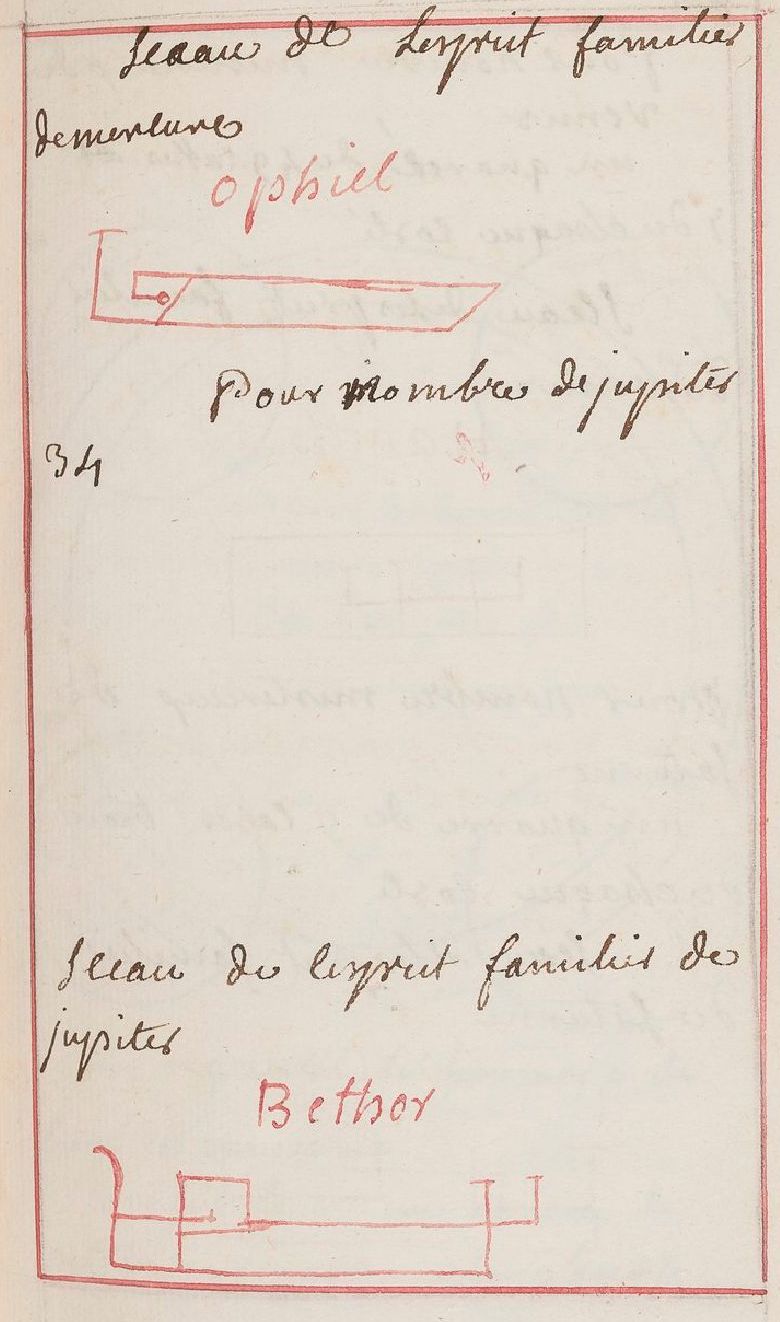 sceau de Lesprit familier
demercure
ophiel
Pour Nombre dejupiter
34
sceau de lesprit familier de
jupiter
Bethor